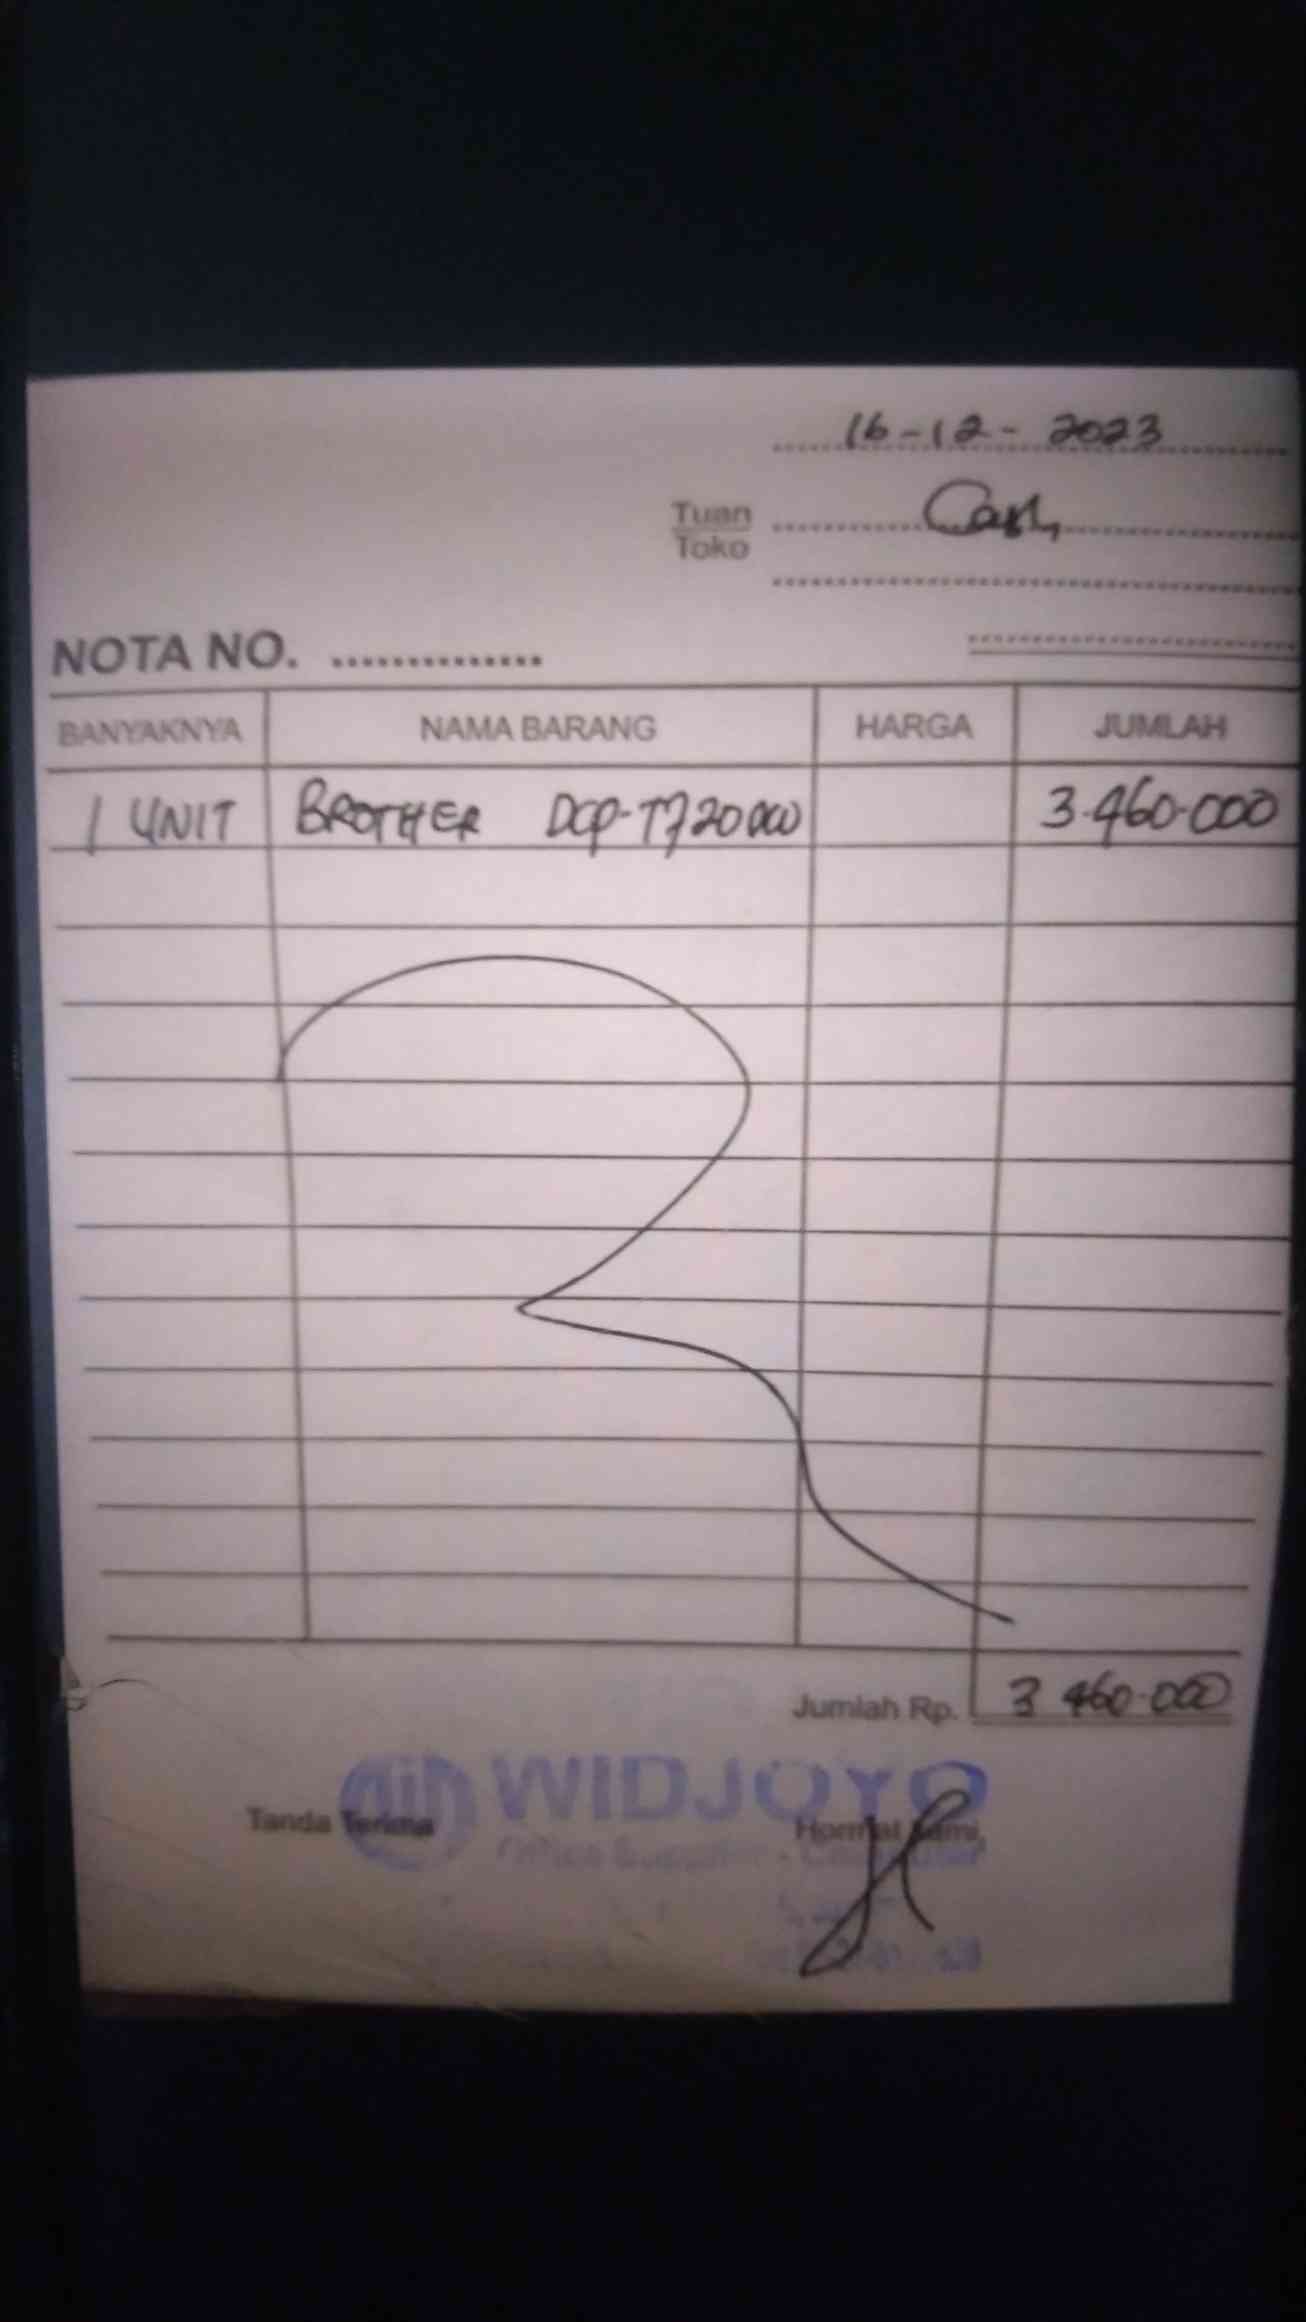 16-12-2023
Tuan Cash
Toko
NOTA NO. ..............
BANYAKNYA NAMA BARANG HARGA JUMLAH
1 UNIT BROTHER DCP-T720DW 3.460.000
Jumlah Rp. 3 460.000
WIDJOYO
Tanda Terima Hormat Kami,
Office Supplier - Computer